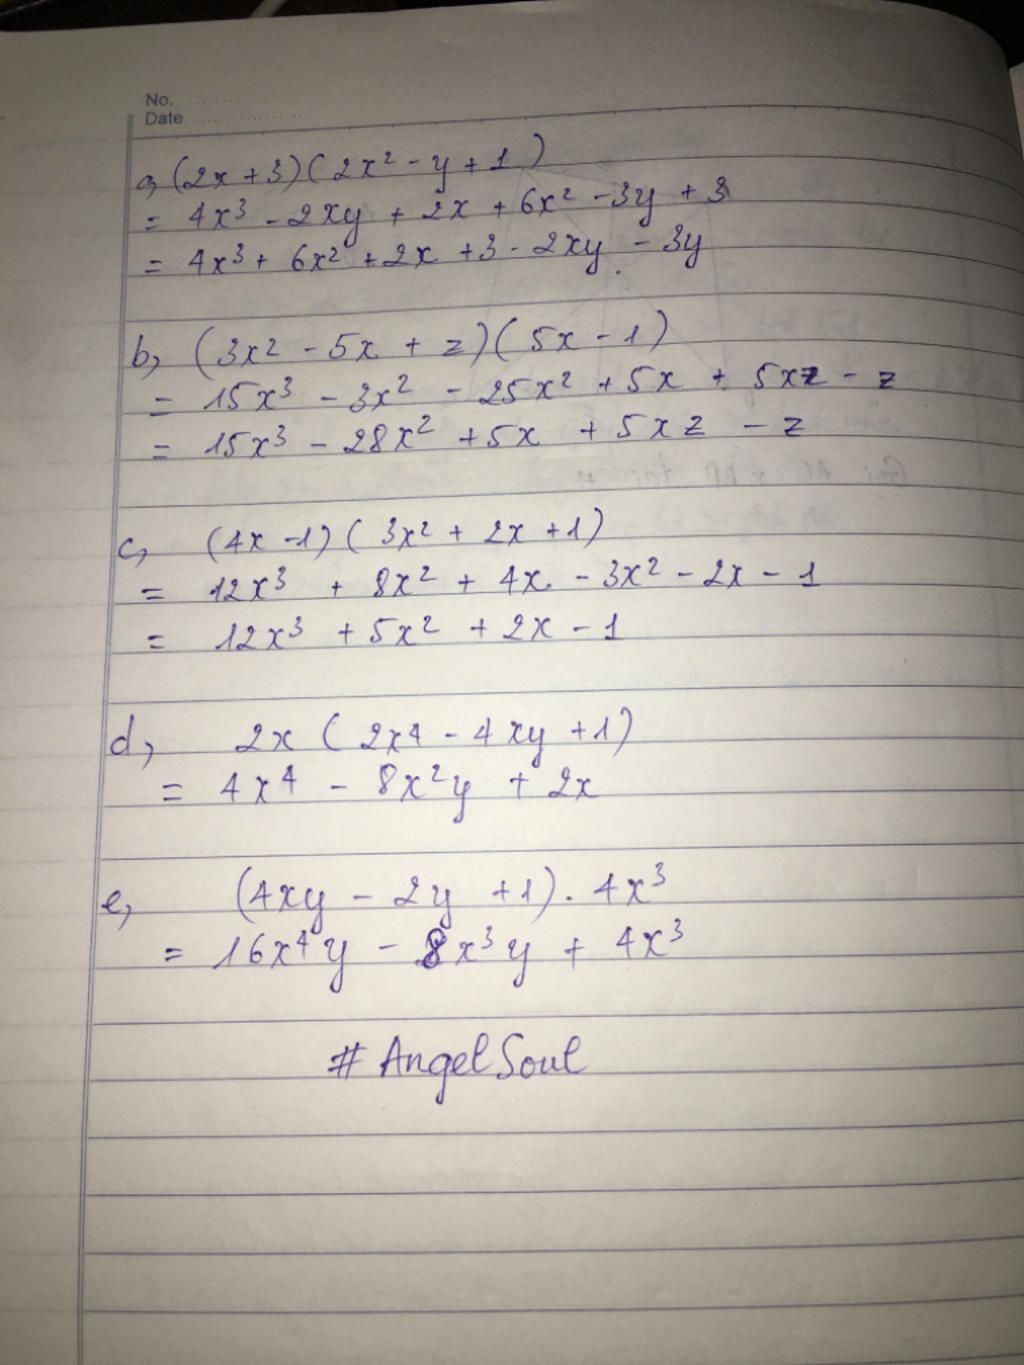 No. ........
Date ..................
a, (2x + 3)(2x² - y + 1)
= 4x³ - 2xy + 2x + 6x² - 3y + 3
= 4x³ + 6x² + 2x + 3 - 2xy - 3y
b, (3x² - 5x + z)(5x - 1)
= 15x³ - 3x² - 25x² + 5x + 5xz - z
= 15x³ - 28x² + 5x + 5xz - z
c, (4x - 1)(3x² + 2x + 1)
= 12x³ + 8x² + 4x - 3x² - 2x - 1
= 12x³ + 5x² + 2x - 1
d, 2x (2x⁴ - 4xy + 1)
= 4x⁴ - 8x²y + 2x
e, (4xy - 2y + 1) . 4x³
= 16x⁴y - 8x³y + 4x³
# AngelSoul